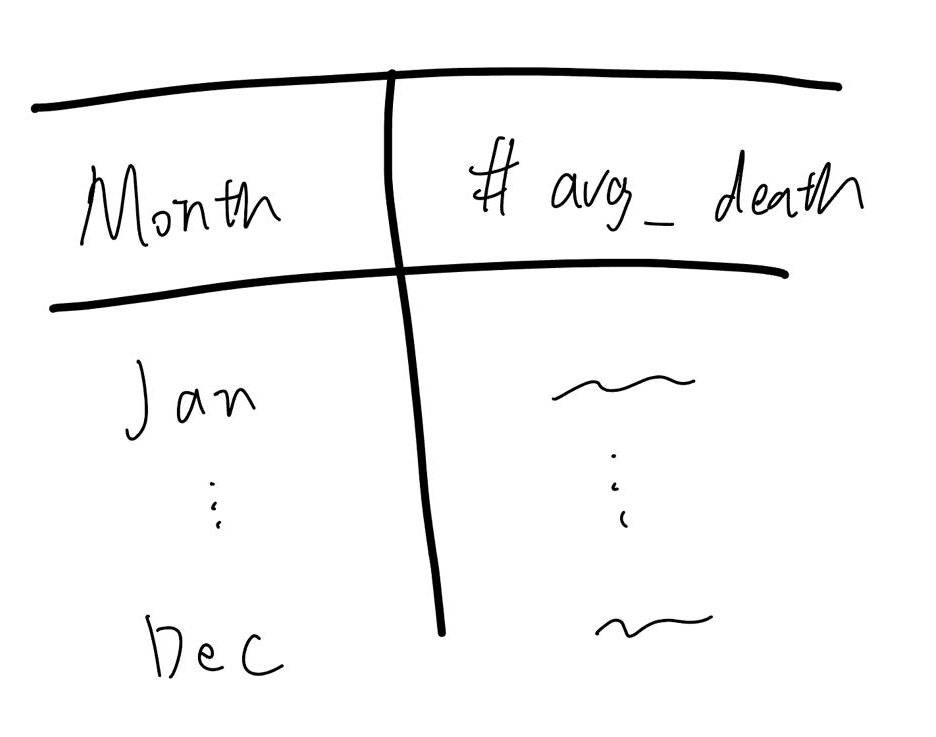 Month # avg_ death
Jan
⋮ ⋮
Dec